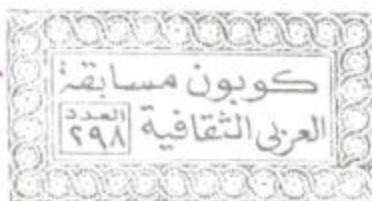 كوبون مسابقة
العربي الثقافية
العدد
٢٩٨